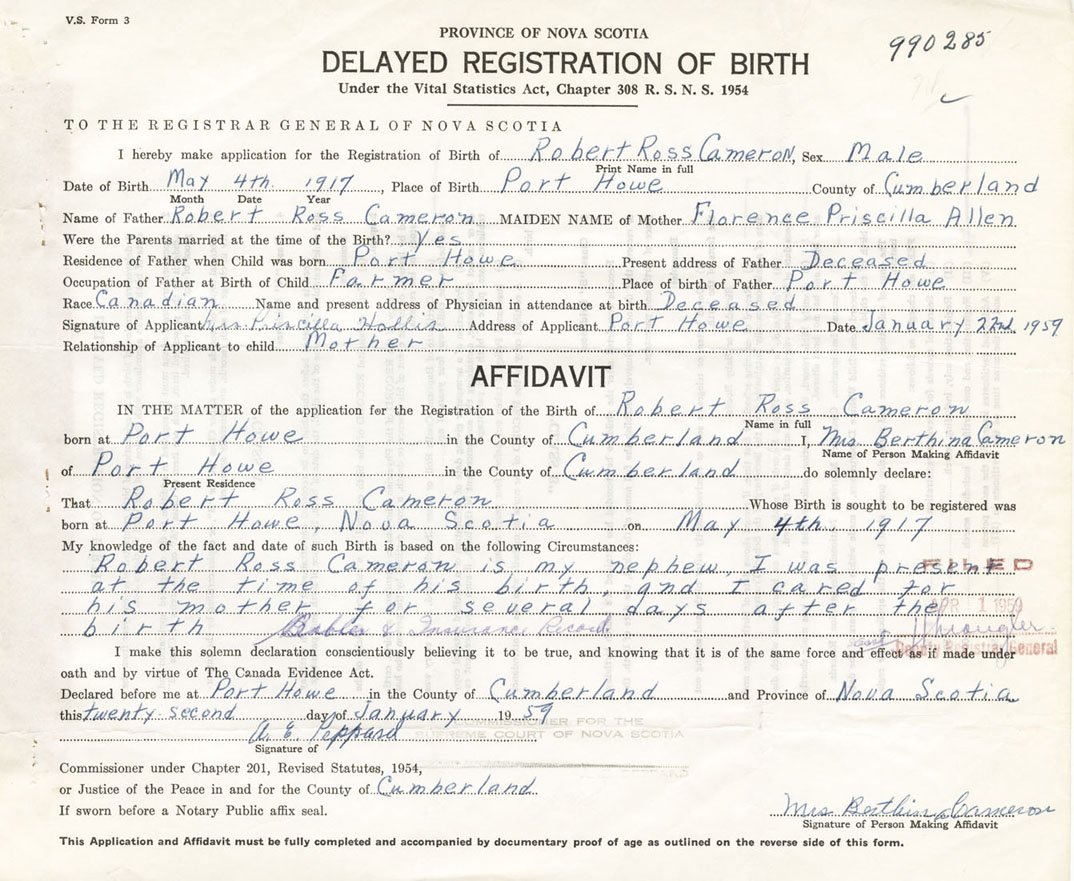 V.S. Form 3
PROVINCE OF NOVA SCOTIA
990285
DELAYED REGISTRATION OF BIRTH
Under the Vital Statistics Act, Chapter 308 R. S. N. S. 1954
TO THE REGISTRAR GENERAL OF NOVA SCOTIA
I hereby make application for the Registration of Birth of Robert Ross Cameron, Sex Male
Print Name in full
Date of Birth May 4th. 1917, Place of Birth Port Howe County of Cumberland
Month Date Year
Name of Father Robert Ross Cameron MAIDEN NAME of Mother Florence Priscilla Allen
Were the Parents married at the time of the Birth? Yes
Residence of Father when Child was born Port Howe Present address of Father Deceased
Occupation of Father at Birth of Child Farmer Place of birth of Father Port Howe
Race Canadian Name and present address of Physician in attendance at birth Deceased
Signature of Applicant Mrs Priscilla Hollis Address of Applicant Port Howe Date January 22nd 1959
Relationship of Applicant to child Mother
AFFIDAVIT
IN THE MATTER of the application for the Registration of the Birth of Robert Ross Cameron
Name in full
born at Port Howe in the County of Cumberland I, Mrs Berthina Cameron
Name of Person Making Affidavit
of Port Howe in the County of Cumberland do solemnly declare:
Present Residence
That Robert Ross Cameron Whose Birth is sought to be registered was
born at Port Howe, Nova Scotia on May 4th 1917
My knowledge of the fact and date of such Birth is based on the following Circumstances:
Robert Ross Cameron is my nephew, I was present
FILED
at the time of his birth, and I cared for
his mother for several days after the
APR 1 1959
birth Insurance Record.
Deputy Registrar General
I make this solemn declaration conscientiously believing it to be true, and knowing that it is of the same force and effect as if made under
oath and by virtue of The Canada Evidence Act.
Declared before me at Port Howe in the County of Cumberland and Province of Nova Scotia
this twenty-second day of January 1959
COMMISSIONER FOR THE
SUPREME COURT OF NOVA SCOTIA
A. E. Peppard
Signature of
Commissioner under Chapter 201, Revised Statutes, 1954,
or Justice of the Peace in and for the County of Cumberland
If sworn before a Notary Public affix seal.
Mrs Berthina Cameron
Signature of Person Making Affidavit
This Application and Affidavit must be fully completed and accompanied by documentary proof of age as outlined on the reverse side of this form.